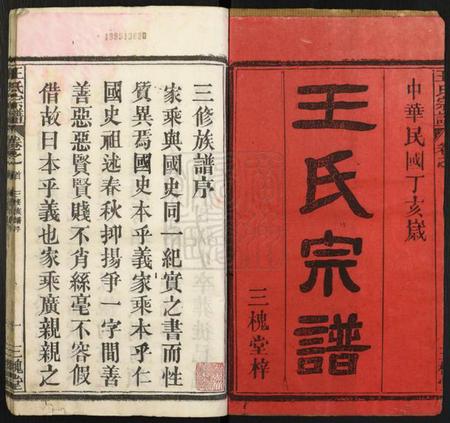 中華民國丁亥歲
王氏宗譜
三槐堂梓
三修族譜序
家乘與國史同一紀實之書而性
質異焉國史本乎義家乘本乎仁
國史祖述春秋抑揚爭一字間善
善惡惡賢賢賤不肖絲毫不容假
借故曰本乎義也家乘廣親親之
王氏宗譜
卷之
首
三修族譜序
一
三槐堂